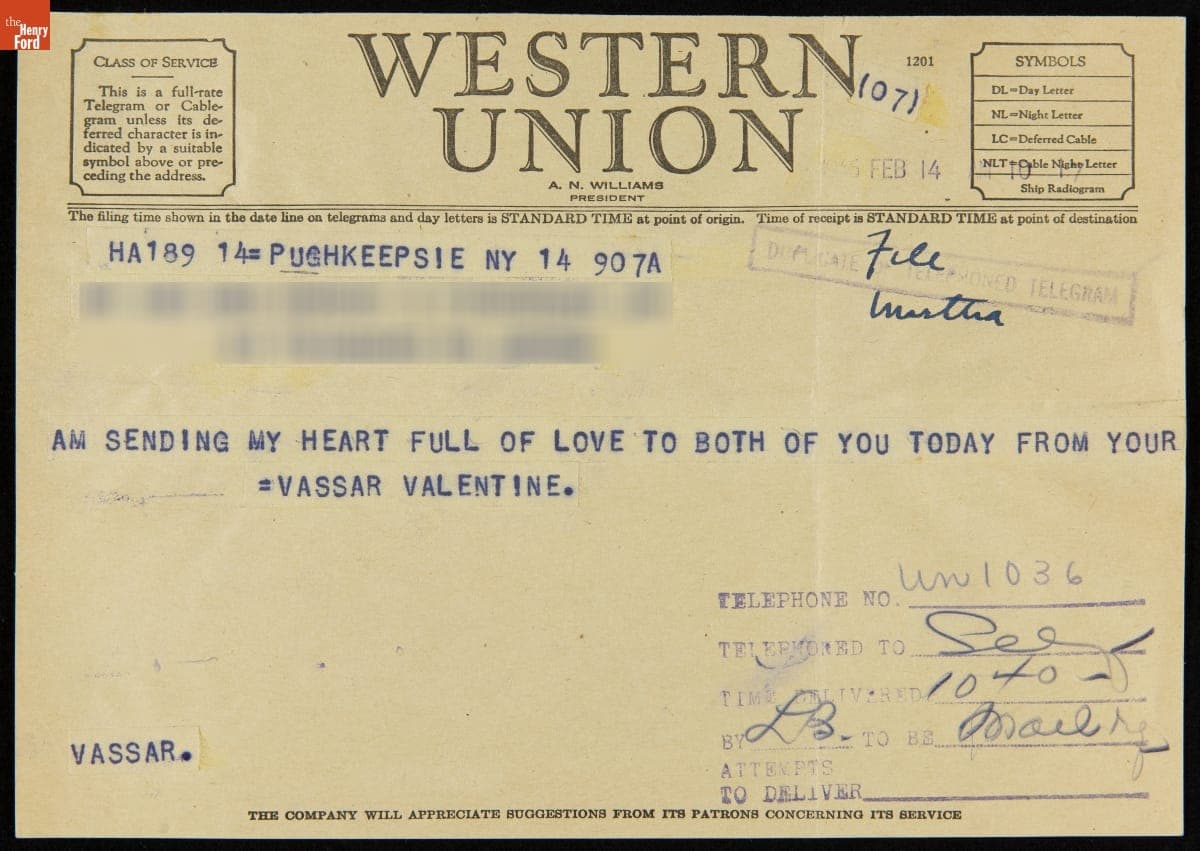 the
Henry
Ford
CLASS OF SERVICE
This is a full-rate
Telegram or Cable-
gram unless its de-
ferred character is in-
dicated by a suitable
symbol above or pre-
ceding the address.
WESTERN
UNION
A. N. WILLIAMS
PRESIDENT
1201
(07)
FEB 14
SYMBOLS
DL=Day Letter
NL=Night Letter
LC=Deferred Cable
NLT=Cable Night Letter
Ship Radiogram
The filing time shown in the date line on telegrams and day letters is STANDARD TIME at point of origin. Time of receipt is STANDARD TIME at point of destination
HA189 14= PUGHKEEPSIE NY 14 907A
DUPLICATE OF TELEPHONED TELEGRAM
File
Martha
AM SENDING MY HEART FULL OF LOVE TO BOTH OF YOU TODAY FROM YOUR
=VASSAR VALENTINE.
TELEPHONE NO. Un1036
TELEPHONED TO
TIME DELIVERED 1040
BY LB. TO BE
ATTEMPTS
TO DELIVER
VASSAR.
THE COMPANY WILL APPRECIATE SUGGESTIONS FROM ITS PATRONS CONCERNING ITS SERVICE